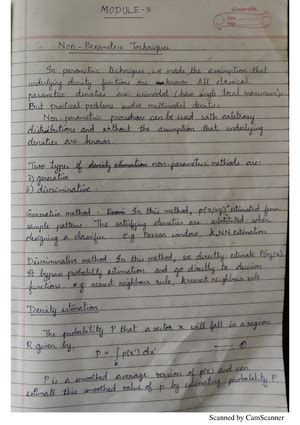 MODULE-3
Non-Parametric Techniques
In parametric techniques we made the assumption that
underlying density functions are known. All classical
parametric densities are unimodal (have single local maximum).
But practical problems involve multimodal densities.
Non-parametric procedures can be used with arbitrary
distributions and without the assumption that underlying
densities are known.
Two types of density estimation non-parametric methods are:
i) generative
ii) discriminative.
Generative method - In this method, estimated from
sample patterns. The satisfying densities are substituted when
designing a classifier. e.g Parzen window, kNN estimation
Discriminative method - In this method, we directly estimate
It bypass probability estimation and go directly to decision
functions. e.g: nearest neighbour rule, k nearest neighbour rule
Density estimation
The probability P that a vector x will fall in a region
R given by,
P = ∫ p(x') dx'
R
P is a smoothed average version of p(x) and can
estimate this smoothed value of p by estimating probability P.
Scanned by CamScanner